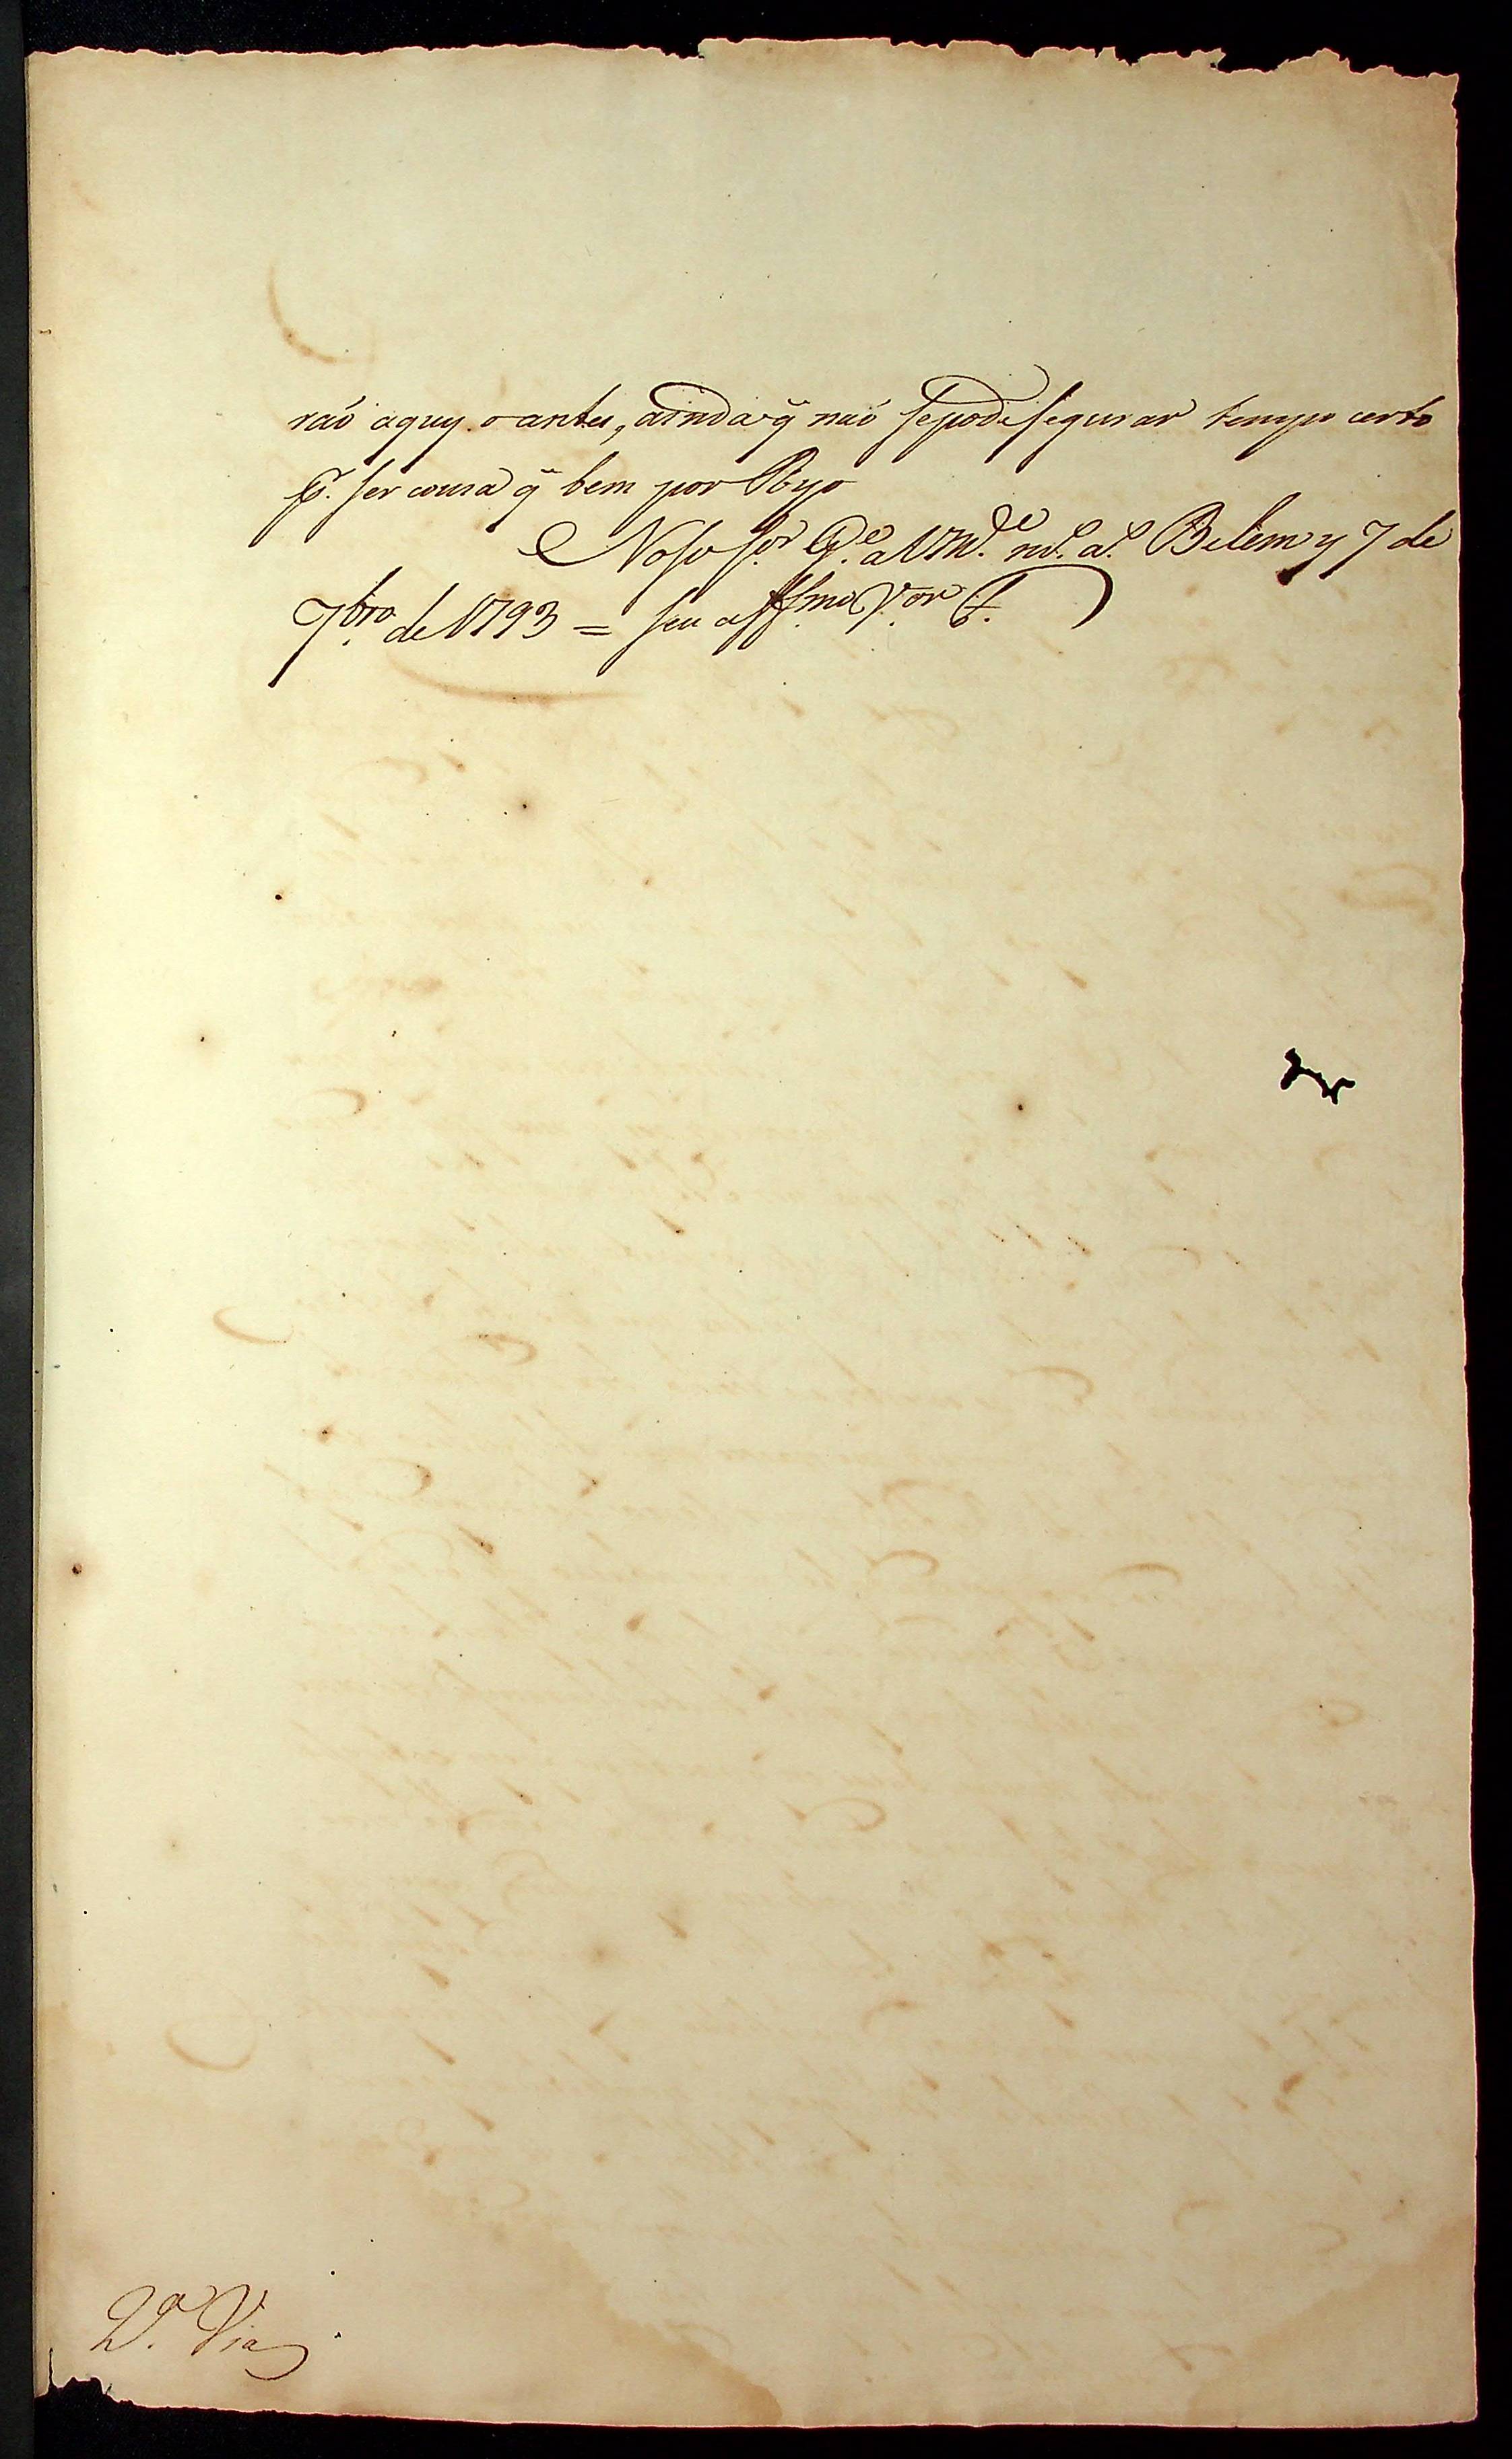 raó aquy o antes, ainda q̃ naó sepode segurar tempo certo
p.r ser cousa q̃ bem por
Noso Sor. G.e a VM.de m.s a.s Belem y 7 de
7bro. de 1793 = seu aff.mo V.or
2.ª Via